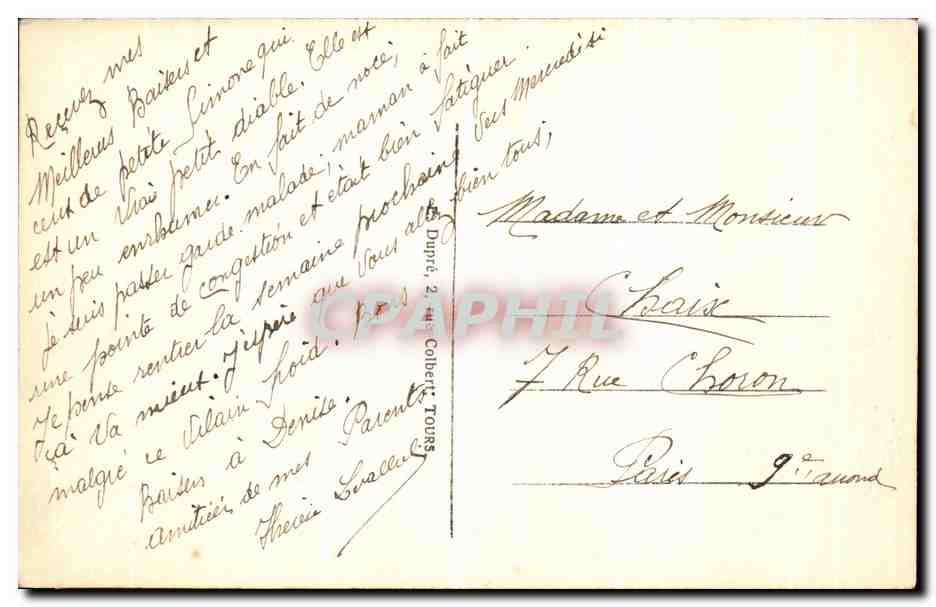 Recevez mes
Meilleurs Baisers et
ceux de petite Simone qui
est un vrai petit diable. Elle est
un peu enrhumer. En fait de noce,
Je suis passer garde-malade, maman a fait
une pointe de congestion et était bien fatiguer
Je pense rentrer la semaine prochaine vers Mercredi si
çà va mieux. J'espère que vous allez bien tous,
malgré ce vilain froid. Bons
Baisers à Denise.
amitiés de mes Parents
Dupré, 2, rue Colbert, TOURS
CPAPHIL
Madame et Monsieur
Chaix
7 Rue Choron
Paris 9e arrond